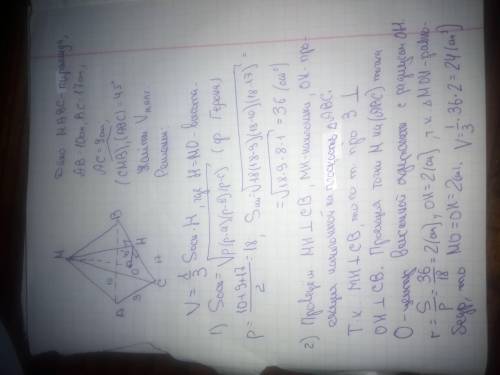 Дано: MABC-пирамида,
AB=10см, BC=17см,
AC=9см,
(CMB),(ABC)=45°
Найти V пир.
Решение:
M
A
B
C
O
H
V = 1/3 Sосн·H, где H=MO-высота.
1) Sосн=√p(p-a)(p-b)(p-c) (ф. Герона)
p = (10+9+17)/2 = 18, Sосн=√18(18-9)(18-10)(18-17) =
= √18·9·8·1 = 36 (см²)
2) Проведём MH⊥CB, MH-наклонная, OH-про-
екция наклонной на плоскость ΔABC.
Т.к. MH⊥CB, то по т. про 3 ⊥
OH⊥CB. Проекция точки M на (ABC) точка
O-центр вписанной окружности с радиусом OH.
r = S/p = 36/18 = 2(см), OH=2(см), т.к. ΔMOH-равно-
бедр, то MO=OH=2см, V=1/3·36·2=24(см³)